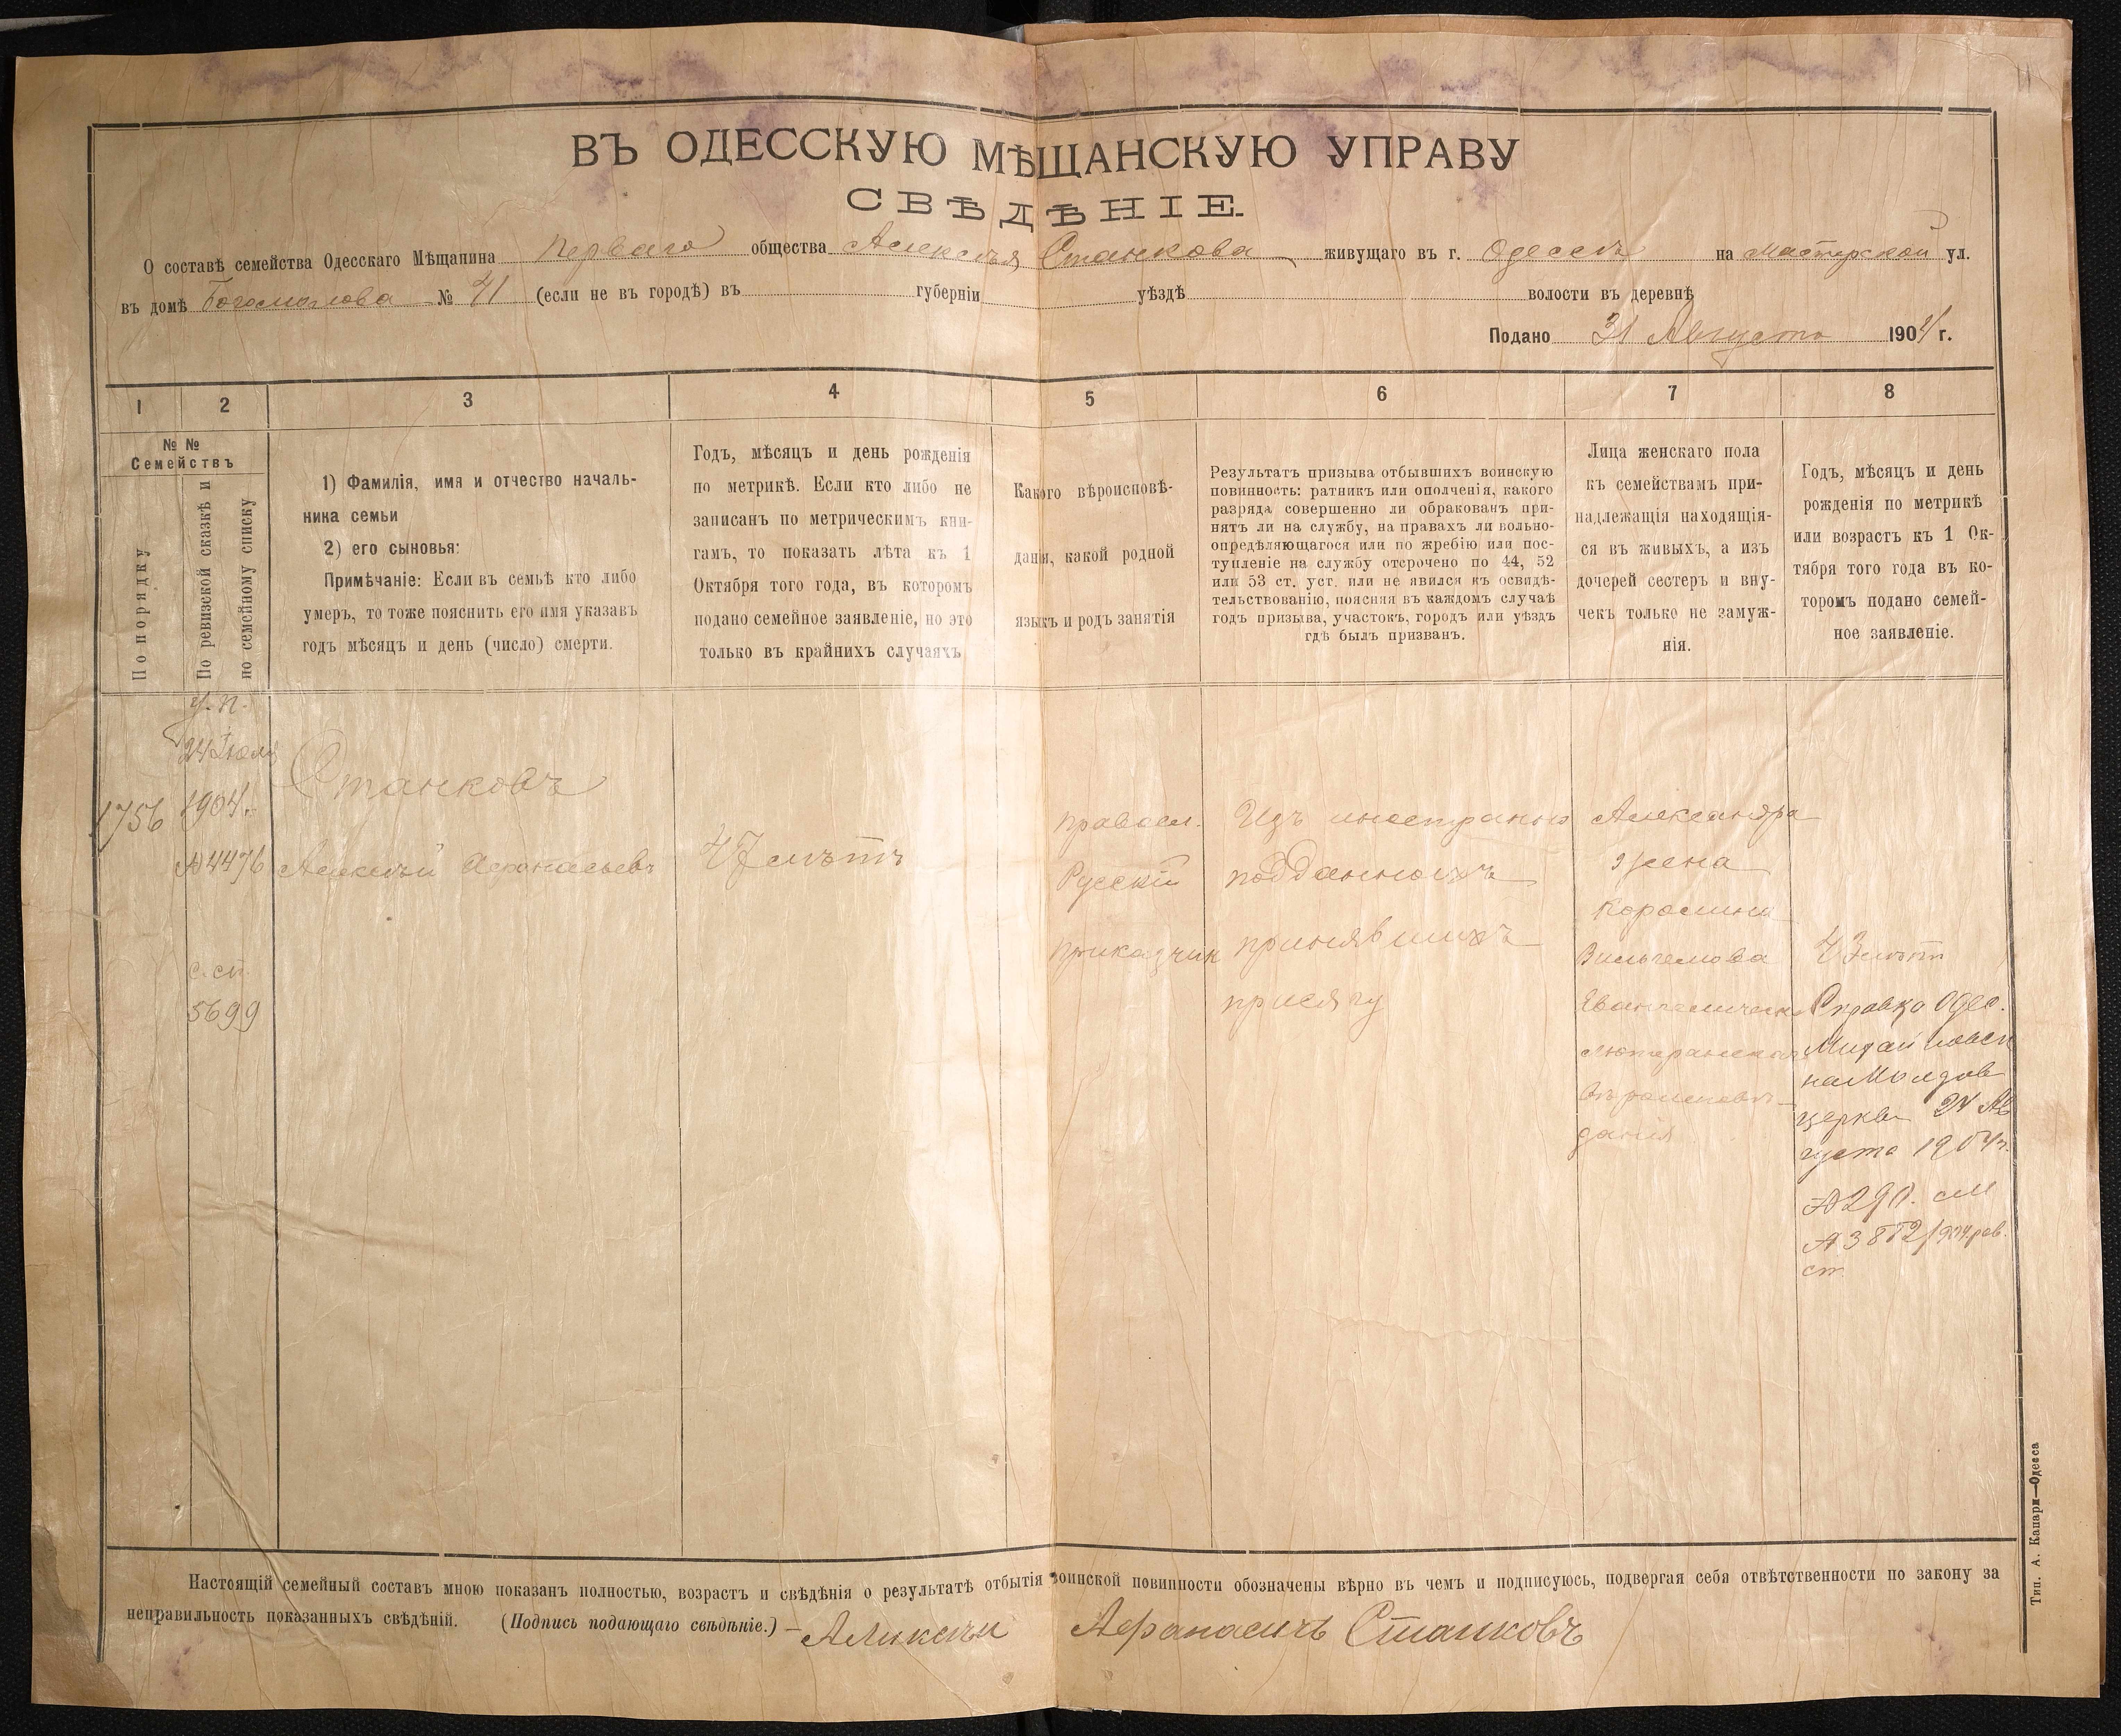 ВЪ ОДЕССКУЮ МѢЩАНСКУЮ УПРАВУ
СВѢДѢНІЕ.
О составѣ семейства Одесскаго Мѣщанина Перваго общества Алексѣя Станкова живущаго въ г. Одессѣ на Мастерской ул.
въ домѣ Богомолова № 41 (если не въ городѣ) въ губерніи уѣздѣ волости въ деревнѣ
Подано 31 Августа 1904 г.
1 2 3 4 5 6 7 8
№ №
Семействъ
По порядку
По ревизской сказкѣ и
по семейному списку
1) Фамилія, имя и отчество началь-
ника семьи
2) его сыновья:
Примѣчаніе: Если въ семьѣ кто либо
умеръ, то тоже пояснить его имя указавъ
годъ мѣсяцъ и день (число) смерти.
Годъ, мѣсяцъ и день рожденія
по метрикѣ. Если кто либо не
записанъ по метрическимъ кни-
гамъ, то показать лѣта къ 1
Октября того года, въ которомъ
подано семейное заявленіе, но это
только въ крайнихъ случаяхъ
Какого вѣроисповѣ-
данія, какой родной
языкъ и родъ занятія
Результатъ призыва отбывшихъ воинскую
повинность: ратникъ или ополченія, какого
разряда совершенно ли обракованъ при-
нятъ ли на службу, на правахъ ли вольно-
опредѣляющагося или по жребію или пос-
тупленіе на службу отсрочено по 44, 52
или 53 ст. уст. или не явился къ освидѣ-
тельствованію, поясняя въ каждомъ случаѣ
годъ призыва, участокъ, городъ или уѣздъ
гдѣ былъ призванъ.
Лица женскаго пола
къ семействамъ при-
надлежащія находящія-
ся въ живыхъ, а изъ
дочерей сестеръ и вну-
чекъ только не замуж-
нія.
Годъ, мѣсяцъ и день
рожденія по метрикѣ
или возрастъ къ 1 Ок-
тября того года въ ко-
торомъ подано семей-
ное заявленіе.
1756
у. п.
24 Іюля
1904 г.
№ 4476
с. сп.
5699
Станковъ
Алексѣй Афанасьевъ
47 лѣтъ
правосл.
Русскій
приказчик
Изъ иностраных
подданныхъ
принявшихъ
присягу
Александра
жена
Каролина
Вильгельмова
Евангелическо
лютеранскаго
вѣроисповѣ-
данія
43 лѣтъ
Справка Одес.
на Молдав
церкви 24 Ав
густа 1904 г.
№ 290. см
№ 3882/904 рев.
сп.
Настоящій семейный составъ мною показанъ полностью, возрастъ и свѣдѣнія о результатѣ отбытія воинской повинности обозначены вѣрно въ чемъ и подписуюсь, подвергая себя отвѣтственности по закону за
неправильность показанныхъ свѣдѣній. (Подпись подающаго свѣдѣніе.) Аликсѣи Афанасичъ Станковъ
Тип. А. Капари—Одесса